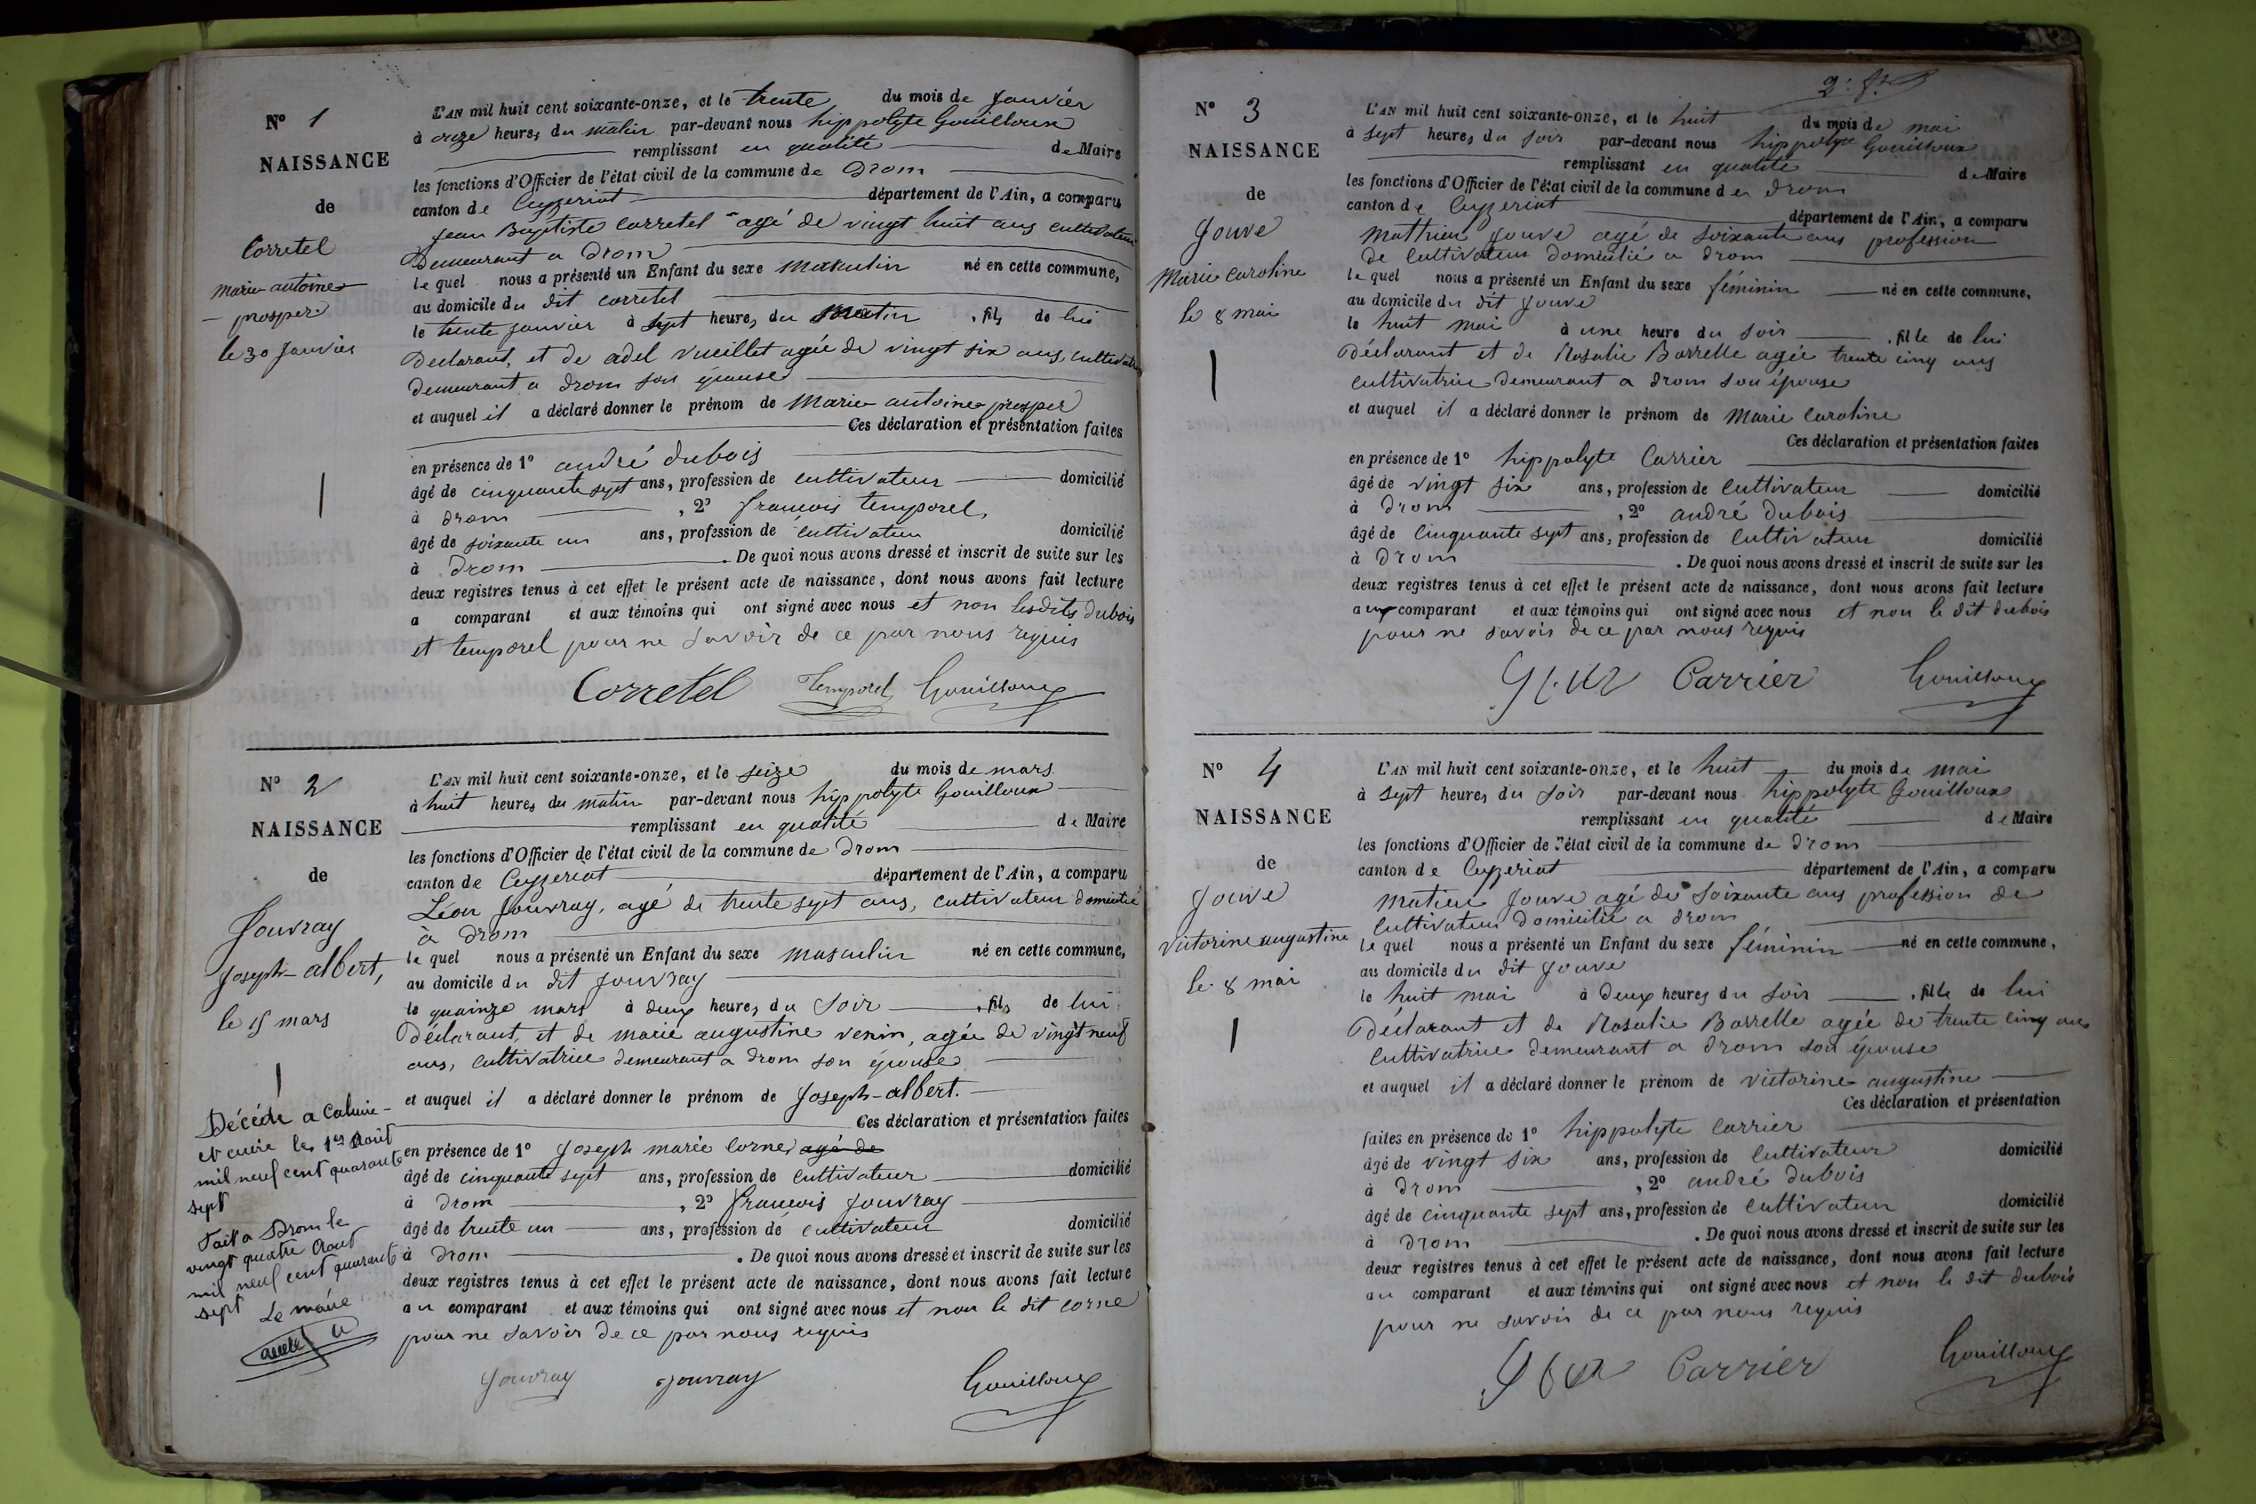 N° 1
NAISSANCE
de
Corretel
marie antoine
prosper
le 30 janvier
L'AN mil huit cent soixante-onze, et le trente du mois de janvier
à onze heures du matin par-devant nous hippolyte Gouilloux
remplissant en qualité de Maire
les fonctions d'Officier de l'état civil de la commune de Drom
canton de Ceyzeriat département de l'Ain, a comparu
jean Baptiste Corretel agé de vingt huit ans cultivateur
Demeurant a Drom
le quel nous a présenté un Enfant du sexe Masculin né en cette commune,
au domicile du dit corretel
le trente janvier à sept heures du Matin , fils de lui
Déclarant, et de adel vueillet agée de vingt six ans, cultivatrice
demeurant a Drom son épouse
et auquel il a déclaré donner le prénom de Marie antoine prosper
Ces déclaration et présentation faites
en présence de 1° andré dubois
âgé de cinquante sept ans, profession de cultivateur domicilié
à Drom , 2° francois temporel,
âgé de soixante un ans, profession de cultivateur domicilié
à Drom . De quoi nous avons dressé et inscrit de suite sur les
deux registres tenus à cet effet le présent acte de naissance, dont nous avons fait lecture
a comparant et aux témoins qui ont signé avec nous et non lesdits dubois
et temporel pour ne savoir de ce par nous requis
Corretel Temporel Gouilloux
N° 2
NAISSANCE
de
Jouvray
Joseph-albert,
le 15 mars
Décédé a Caluire-
et cuire le 1er Août
mil neuf cent quarante
sept
Fait a Drom le
vingt quatre Août
mil neuf cent quarante
sept Le maire
L'AN mil huit cent soixante-onze, et le seize du mois de mars
à huit heures du matin par-devant nous hippolyte Gouilloux
remplissant en qualité de Maire
les fonctions d'Officier de l'état civil de la commune de Drom
canton de Ceyzeriat département de l'Ain, a comparu
Léon Jouvray, agé de trente sept ans, cultivateur domicilié
à Drom
le quel nous a présenté un Enfant du sexe masculin né en cette commune,
au domicile du dit Jouvray
le quainze mars à deux heures du soir , fils de lui
Déclarant, et de marie augustine venin, agée de vingt neuf
ans, cultivatrice demeurant a Drom son épouse
et auquel il a déclaré donner le prénom de Joseph-albert.
Ces déclaration et présentation faites
en présence de 1° Joseph marie Corne agé de
âgé de cinquante sept ans, profession de cultivateur domicilié
à Drom , 2° francois Jouvray
âgé de trente un ans, profession de cultivateur domicilié
à Drom . De quoi nous avons dressé et inscrit de suite sur les
deux registres tenus à cet effet le présent acte de naissance, dont nous avons fait lecture
au comparant et aux témoins qui ont signé avec nous et non le dit corne
pour ne savoir de ce par nous requis
Jouvray Jouvray Gouilloux
N° 3
NAISSANCE
de
Jouve
Marie caroline
le 8 mai
L'AN mil huit cent soixante-onze, et le huit du mois de mai
à sept heures du soir par-devant nous hippolyte Gouilloux
remplissant en qualité de Maire
les fonctions d'Officier de l'état civil de la commune de Drom
canton de Ceyzeriat département de l'Ain, a comparu
Mathieu Jouve agé de soixante ans profession
de cultivateur domicilié a Drom
le quel nous a présenté un Enfant du sexe féminin né en cette commune,
au domicile du dit Jouve
le huit mai à une heure du soir , fille de lui
Déclarant et de Rosalie Barrelle agée trente cinq ans
cultivatrice demeurant a Drom son épouse
et auquel il a déclaré donner le prénom de Marie caroline
Ces déclaration et présentation faites
en présence de 1° hippolyte Carrier
âgé de vingt six ans, profession de cultivateur domicilié
à Drom , 2° andré dubois
âgé de cinquante sept ans, profession de cultivateur domicilié
à Drom . De quoi nous avons dressé et inscrit de suite sur les
deux registres tenus à cet effet le présent acte de naissance, dont nous avons fait lecture
au comparant et aux témoins qui ont signé avec nous et non le dit dubois
pour ne savoir de ce par nous requis
Carrier Gouilloux
N° 4
NAISSANCE
de
Jouve
victorine augustine
le 8 mai
L'AN mil huit cent soixante-onze, et le huit du mois de mai
à sept heures du soir par-devant nous hippolyte Gouilloux
remplissant en qualité de Maire
les fonctions d'Officier de l'état civil de la commune de Drom
canton de Ceyzeriat département de l'Ain, a comparu
Matieu Jouve agé de soixante ans profession de
cultivateur domicilié a Drom
le quel nous a présenté un Enfant du sexe féminin né en cette commune,
au domicile du dit Jouve
le huit mai à deux heures du soir , fille de lui
Déclarant et de Rosalie Barrelle agée de trente cinq ans
cultivatrice demeurant a Drom son épouse
et auquel il a déclaré donner le prénom de victorine augustine
Ces déclaration et présentation
faites en présence de 1° hippolyte carrier
âgé de vingt six ans, profession de cultivateur domicilié
à Drom , 2° andré dubois
âgé de cinquante sept ans, profession de cultivateur domicilié
à Drom . De quoi nous avons dressé et inscrit de suite sur les
deux registres tenus à cet effet le présent acte de naissance, dont nous avons fait lecture
au comparant et aux témoins qui ont signé avec nous et non le dit dubois
pour ne savoir de ce par nous requis
Carrier Gouilloux